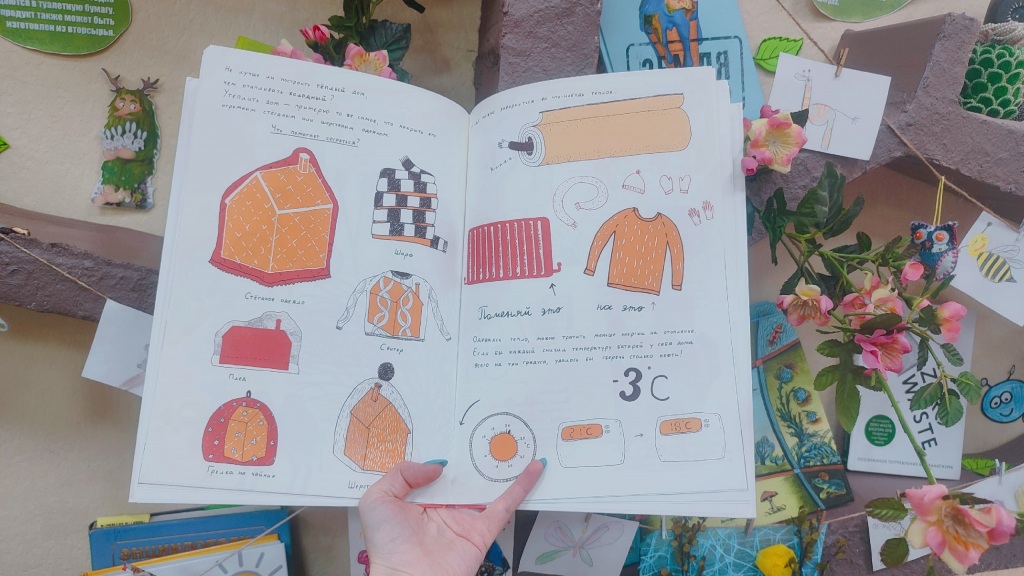 ются в туалетную бумагу,
продукт также может быть
изготовлен из вторсырья.
Не лучше ли построить тёплый дом,
чем отапливать холодный?
Утеплить дом — примерно то же самое, что накрыть его
огромным стёганым или шерстяным одеялом.
Что поможет согреться?
Шарф
Стёганое одеяло
Свитер
Плед
Грелка на чайник
Шерст
во что-нибудь тёплое.
Поменяй это
на это
Одеваясь тепло, можно тратить меньше энергии на отопление.
Если бы каждый снизил температуру батарей у себя дома
всего на три градуса, удалось бы сберечь столько нефти!
-3°C
21°C
18°C
ZERO
WASTE